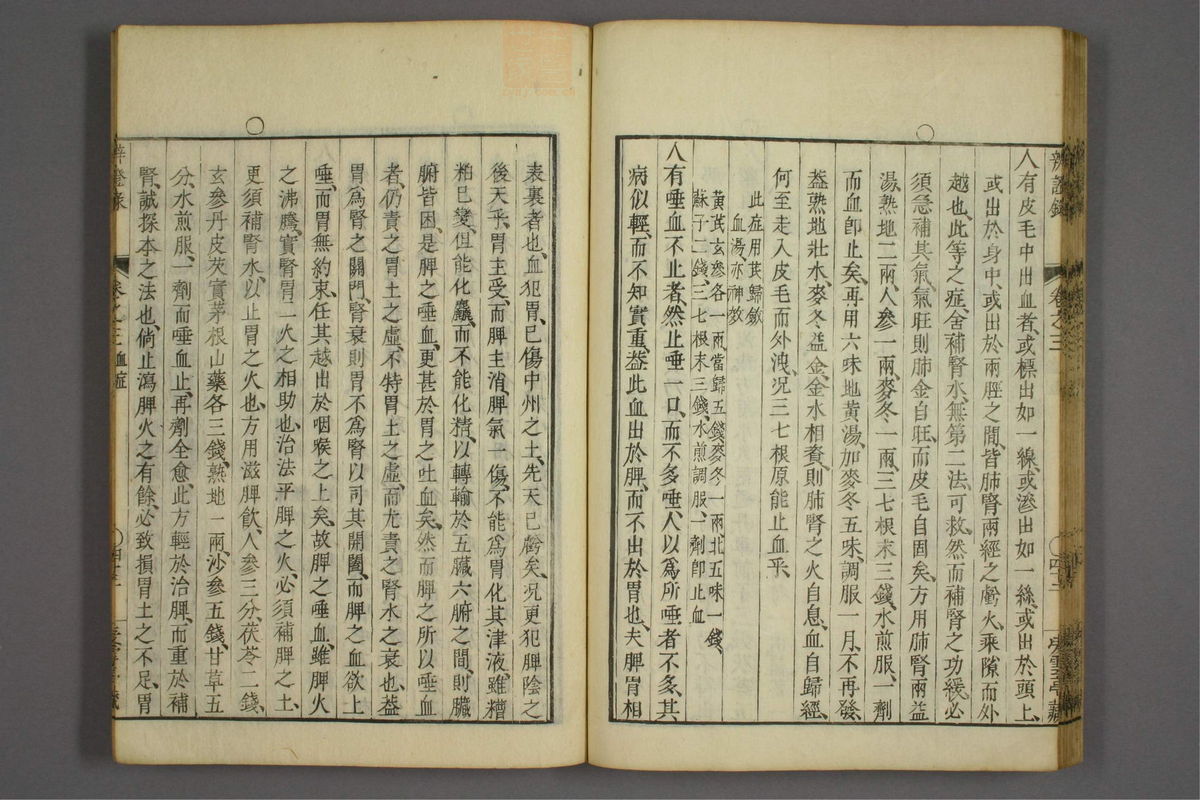 辨證錄
卷之三
人有皮毛中出血者、或標出如一線、或滲出如一絲、或出於頭上、
或出於身中、或出於兩脛之間、皆肺腎兩經之虧、火乘隙而外
越也、此等之症、舍補腎水、無第二法可救、然而補腎之功緩、必
須急補其氣、氣旺則肺金自旺、而皮毛自固矣、方用肺腎兩益
湯、熟地二兩、人參一兩、麥冬一兩、三七根末三錢、水煎服、一劑
而血卽止矣、再用六味地黃湯、加麥冬五味、調服一月、不再發、
葢熟地壯水、麥冬益金、金水相資、則肺腎之火自息、血自歸經、
何至走入皮毛而外洩、況三七根原能止血乎、
此症用芪歸斂
血湯、亦神效
黃芪玄參各一兩當歸五錢麥冬一兩北五味一錢、
蘇子二錢、三七根末三錢、水煎調服、一劑卽止血
人有唾血不止者、然止唾一口、而不多唾、人以爲所唾者不多、其
病似輕、而不知實重、葢此血出於脾、而不出於胃也、夫脾胃相
表裏者也、血犯胃、已傷中州之土、先天已虧矣、況更犯脾陰之
後天乎、胃主受、而脾主消、脾氣一傷、不能爲胃化其津液、雖糟
粕已變、但能化麤、而不能化精、以轉輸於五臟六腑之間、則臟
腑皆困、是脾之唾血、更甚於胃之吐血矣、然而脾之所以唾血
者、仍責之胃土之虛、不特胃土之虛、而尤責之腎水之衰也、葢
胃爲腎之關門、腎衰則胃不爲腎以司其開闔、而脾之血欲上
唾、而胃無約束、任其越出於咽喉之上矣、故脾之唾血、雖脾火
之沸騰、實腎胃二火之相助也、治法平脾之火、必須補脾之土、
更須補腎水、以止胃之火也、方用滋脾飮、人參三分、茯苓二錢、
玄參丹皮芡實茅根山藥各三錢、熟地一兩、沙參五錢、甘草五
分、水煎服、一劑而唾血止、再劑全愈、此方輕於治脾、而重於補
腎、誠探本之法也、倘止瀉脾火之有餘、必致損胃土之不足、胃
辨證錄
卷之三 血症